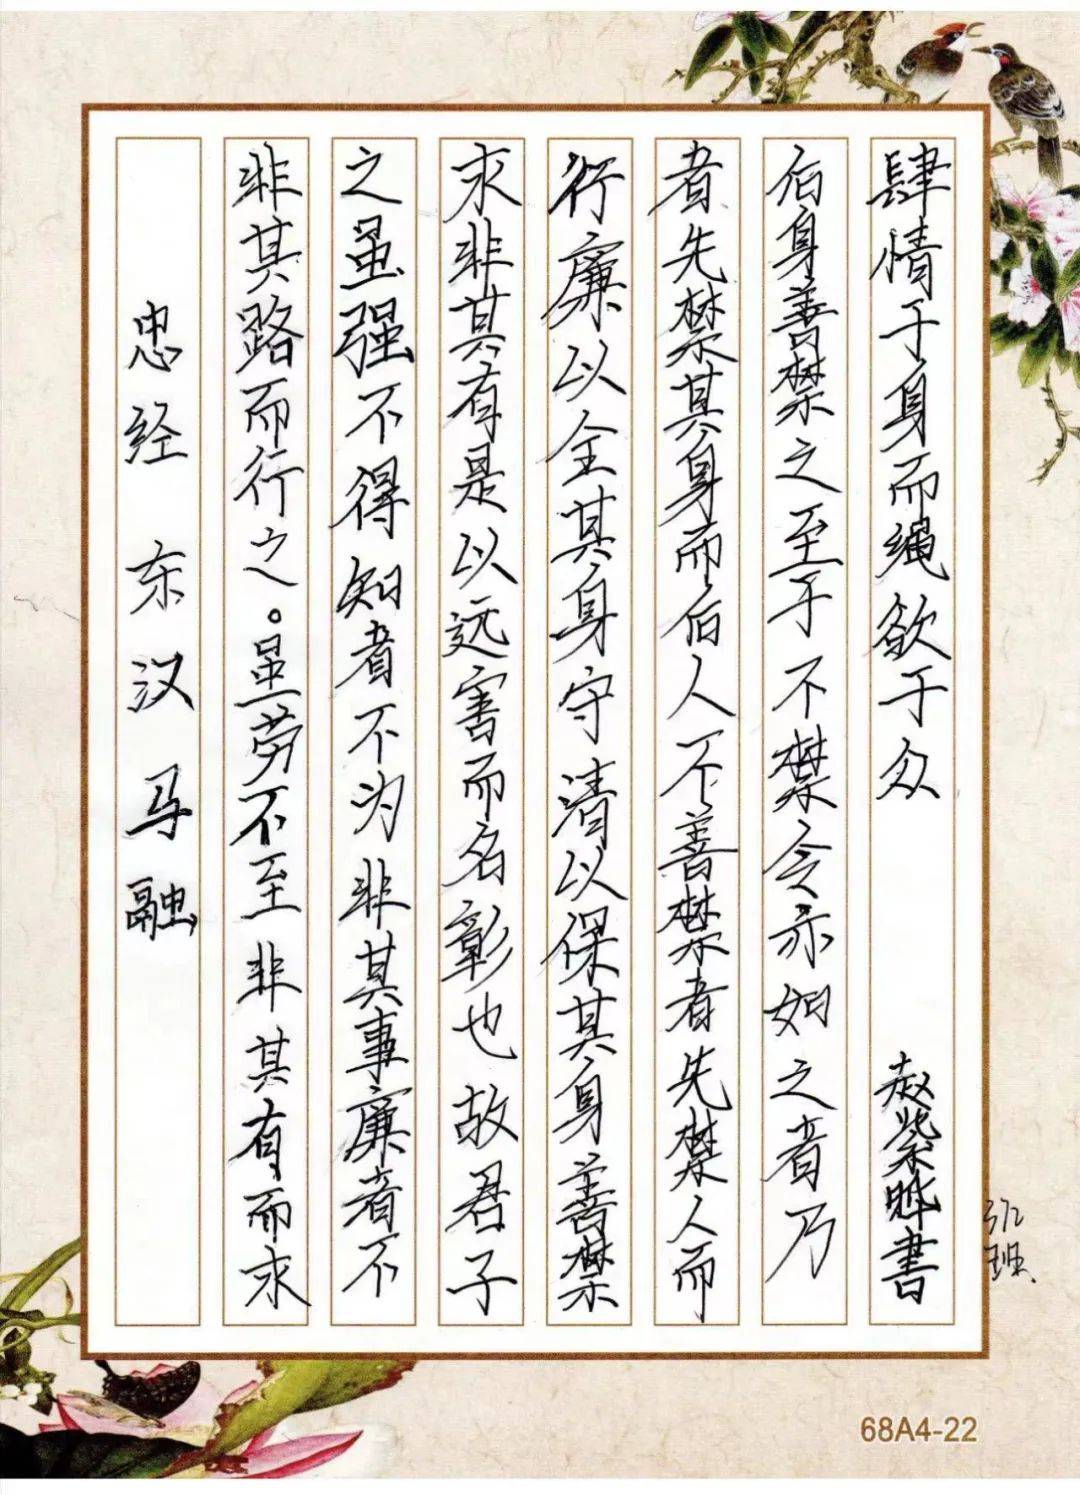 忠经 东汉 马融
非其路而行之。虽劳不至非其有而求
之虽强不得知者不为非其事廉者不
求非其有是以远害而名彰也故君子
行廉以全其身守清以保其身善禁
者先禁其身而后人不善禁者先禁人而
后身善禁之至于不禁令亦如之者乃
肆情于身而绳欲于众 赵紫晔書
68A4-22